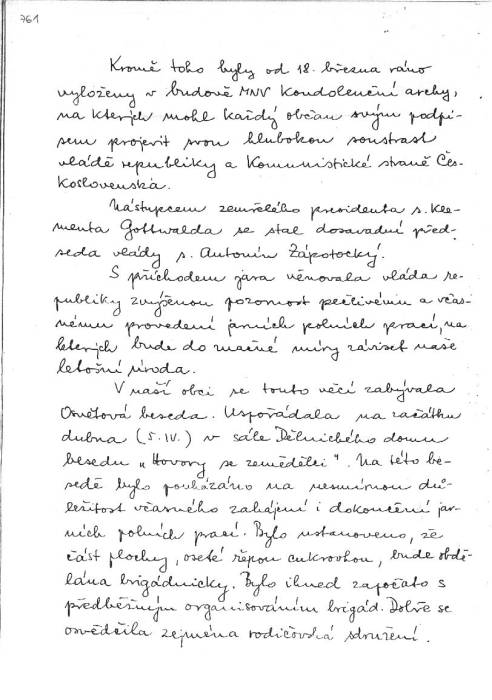 761
Kromě toho byly od 18. března ráno
vyloženy v budově MNV kondolenční archy,
na kterých mohl každý občan svým podpi-
sem projevit svou hlubokou soustrast
vládě republiky a Komunistické straně Čes-
koslovenska.
Nástupcem zemřelého presidenta s. Kle-
menta Gottwalda se stal dosavadní před-
seda vlády s. Antonín Zápotocký.
S příchodem jara věnovala vláda re-
publiky zvýšenou pozornost pečlivému a včas-
nému provedení jarních polních prací, na
kterých bude do značné míry záviset naše
letošní úroda.
V naší obci se touto věcí zabývala
Osvětová beseda. Uspořádala na začátku
dubna (5.IV.) v sále Dělnického domu
besedu „Hovory se zemědělci". Na této be-
sedě bylo poukázáno na nesmírnou dů-
ležitost včasného zahájení i dokončení jar-
ních polních prací. Bylo ustanoveno, že
část plochy, oseté řepou cukrovkou, bude obdě-
lána brigádnicky. Bylo ihned započato s
předběžným organisováním brigád. Dobře se
osvědčila zejména rodičovská sdružení.